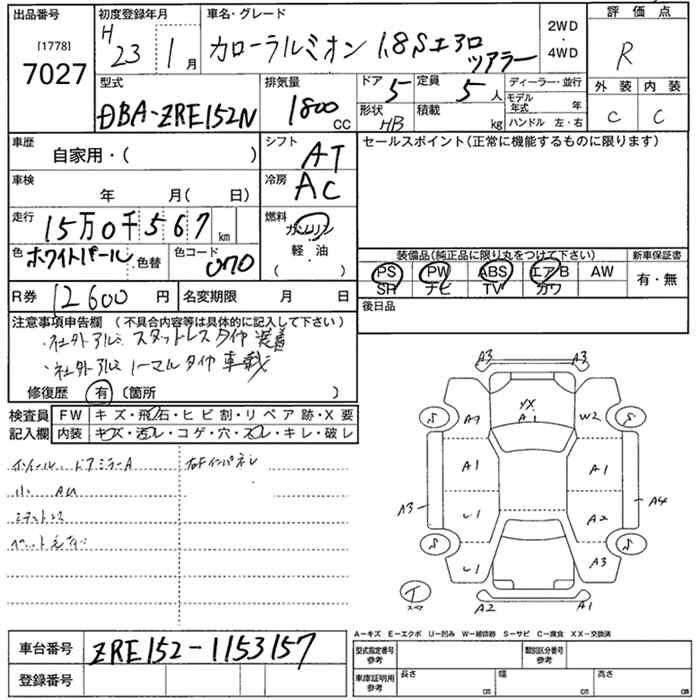 出品番号
[1778]
7027
初度登録年月
H 23年 1月
車名・グレード
カローラルミオン 1.8Sエアロ
ツアラー
2WD
・
4WD
評価点
R
外装 内装
C C
型式
DBA-ZRE152N
排気量
1800 CC
ドア 5
定員 5人
形状 HB
積載 kg
ディーラー・並行
モデル年式 年
ハンドル 左・右
車歴
自家用・( )
シフト AT
車検
年 月( 日)
冷房 AC
走行
15万0千567km
燃料
ガソリン
軽・油
( )
色 ホワイトパール 色替
色コード 070
R券 12600円
名変期限 月 日
セールスポイント(正常に機能するものに限ります)
装備品(純正品に限り丸をつけて下さい)
PS PW ABS エアB AW
SR ナビ TV カワ
新車保証書
有・無
後日品
注意事項申告欄 (不具合内容等は具体的に記入して下さい)
・社外アルミ スタットレスタイヤ 装着
・社外アルミ ノーマルタイヤ 車載
修復歴 有 〔箇所 〕
検査員 FW キズ・飛石・ヒビ割・リペア跡・X要
記入欄 内装 キズ・汚レ・コゲ・穴・スレ・キレ・破レ
ホイール、ドアミラーA
右Fインパネレ
小 AU
A3 A3
S S
XX
A1
W2
A1 A1
A3 A4
U1 A2
S S
U1 A3
T
A2 A1
A-キズ E-エクボ U-凹み W-補修跡 S-サビ C-腐食 XX-交換済
車台番号 ZRE152-1153157
登録番号
型式指定番号
参考
類別区分番号
参考
車庫証明用
参考
長さ cm
幅 cm
高さ cm